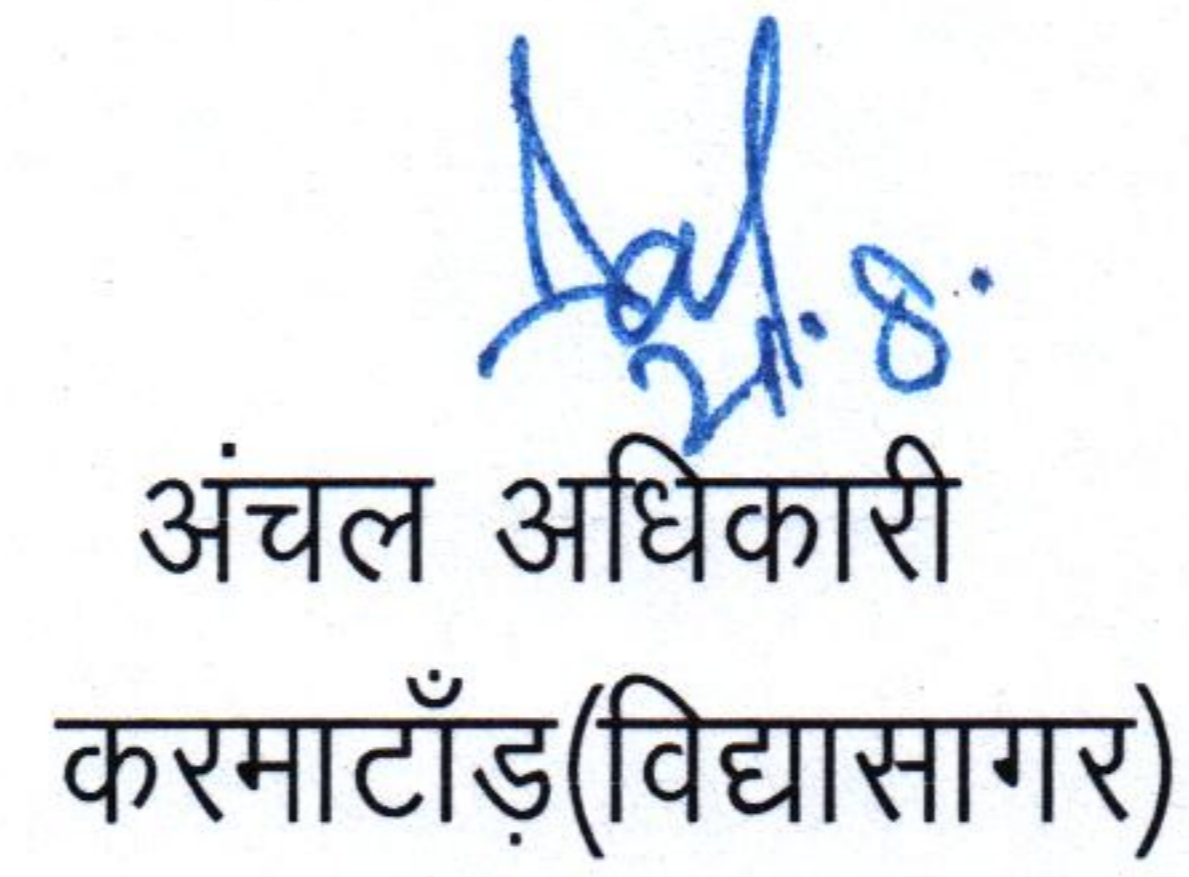 21.8.
अंचल अधिकारी
करमाटाँड़(विद्यासागर)